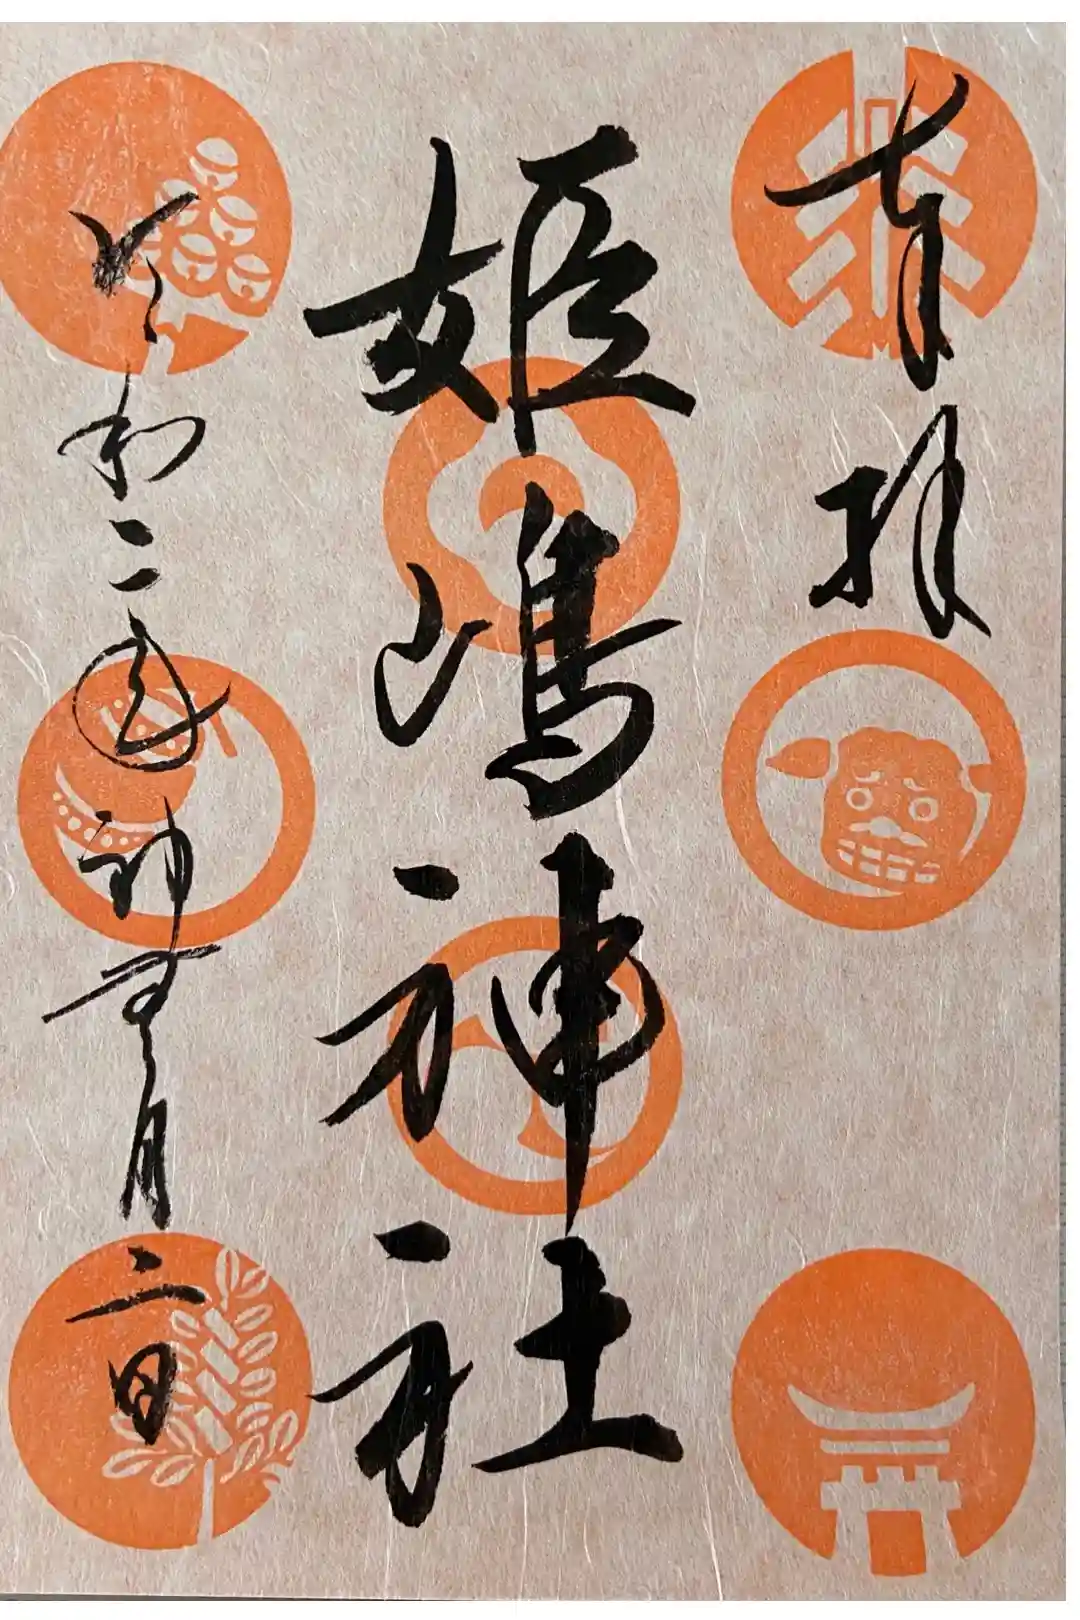 奉拝
姫嶋神社
令和二年神無月二日